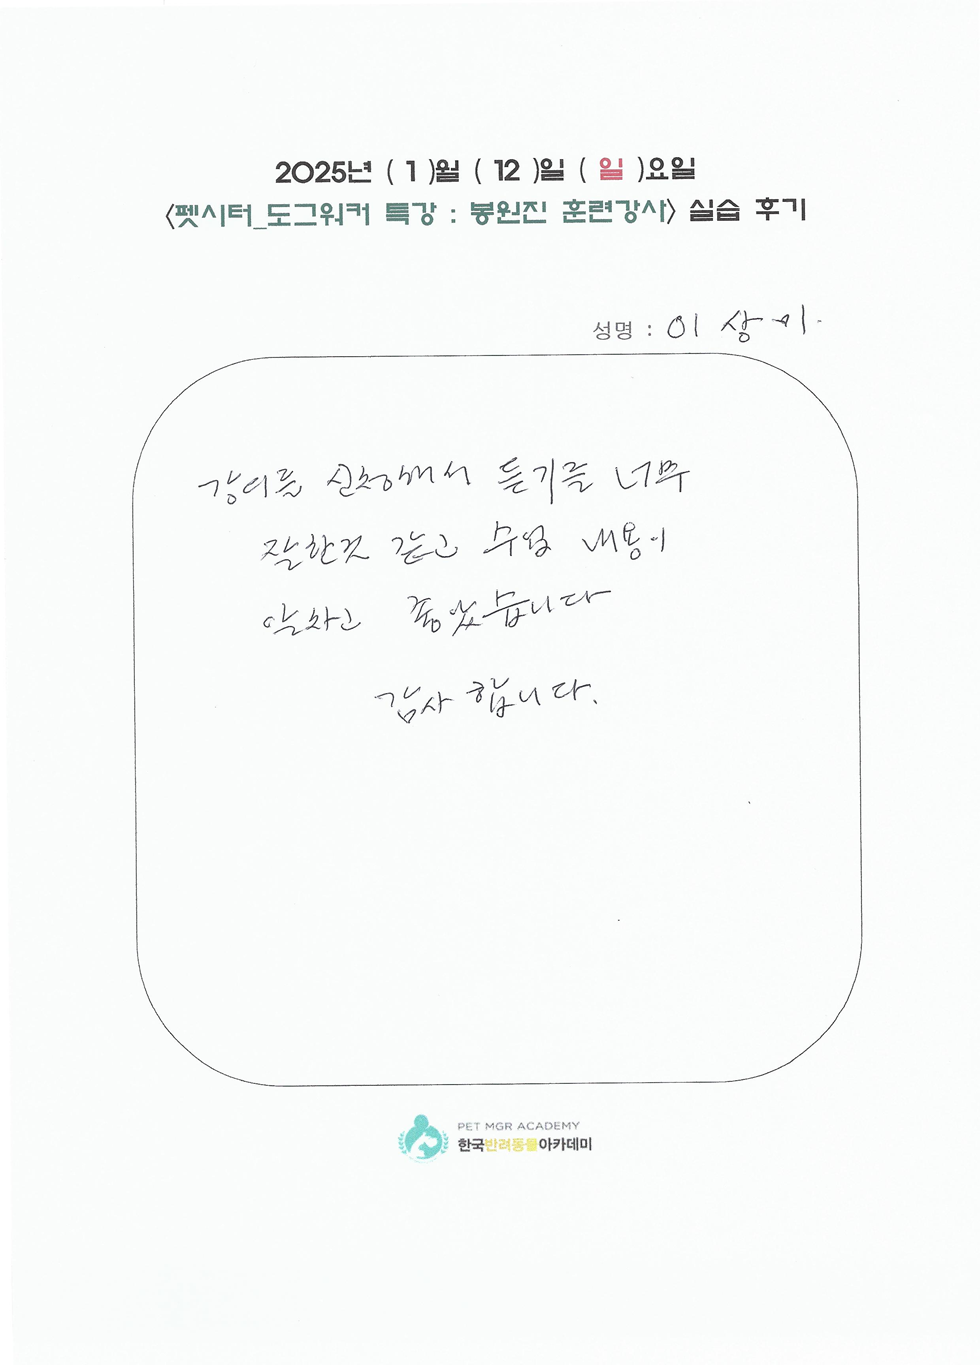 2025년 ( 1 )월 ( 12 )일 ( 일 )요일
<펫시터_도그워커 특강 : 봉원진 훈련강사> 실습 후기
성명 : 이상미.
강의를 신청해서 듣기를 너무
잘한것 같고 수업 내용이
알차고 좋았습니다
감사합니다.
PET MGR ACADEMY
한국반려동물아카데미